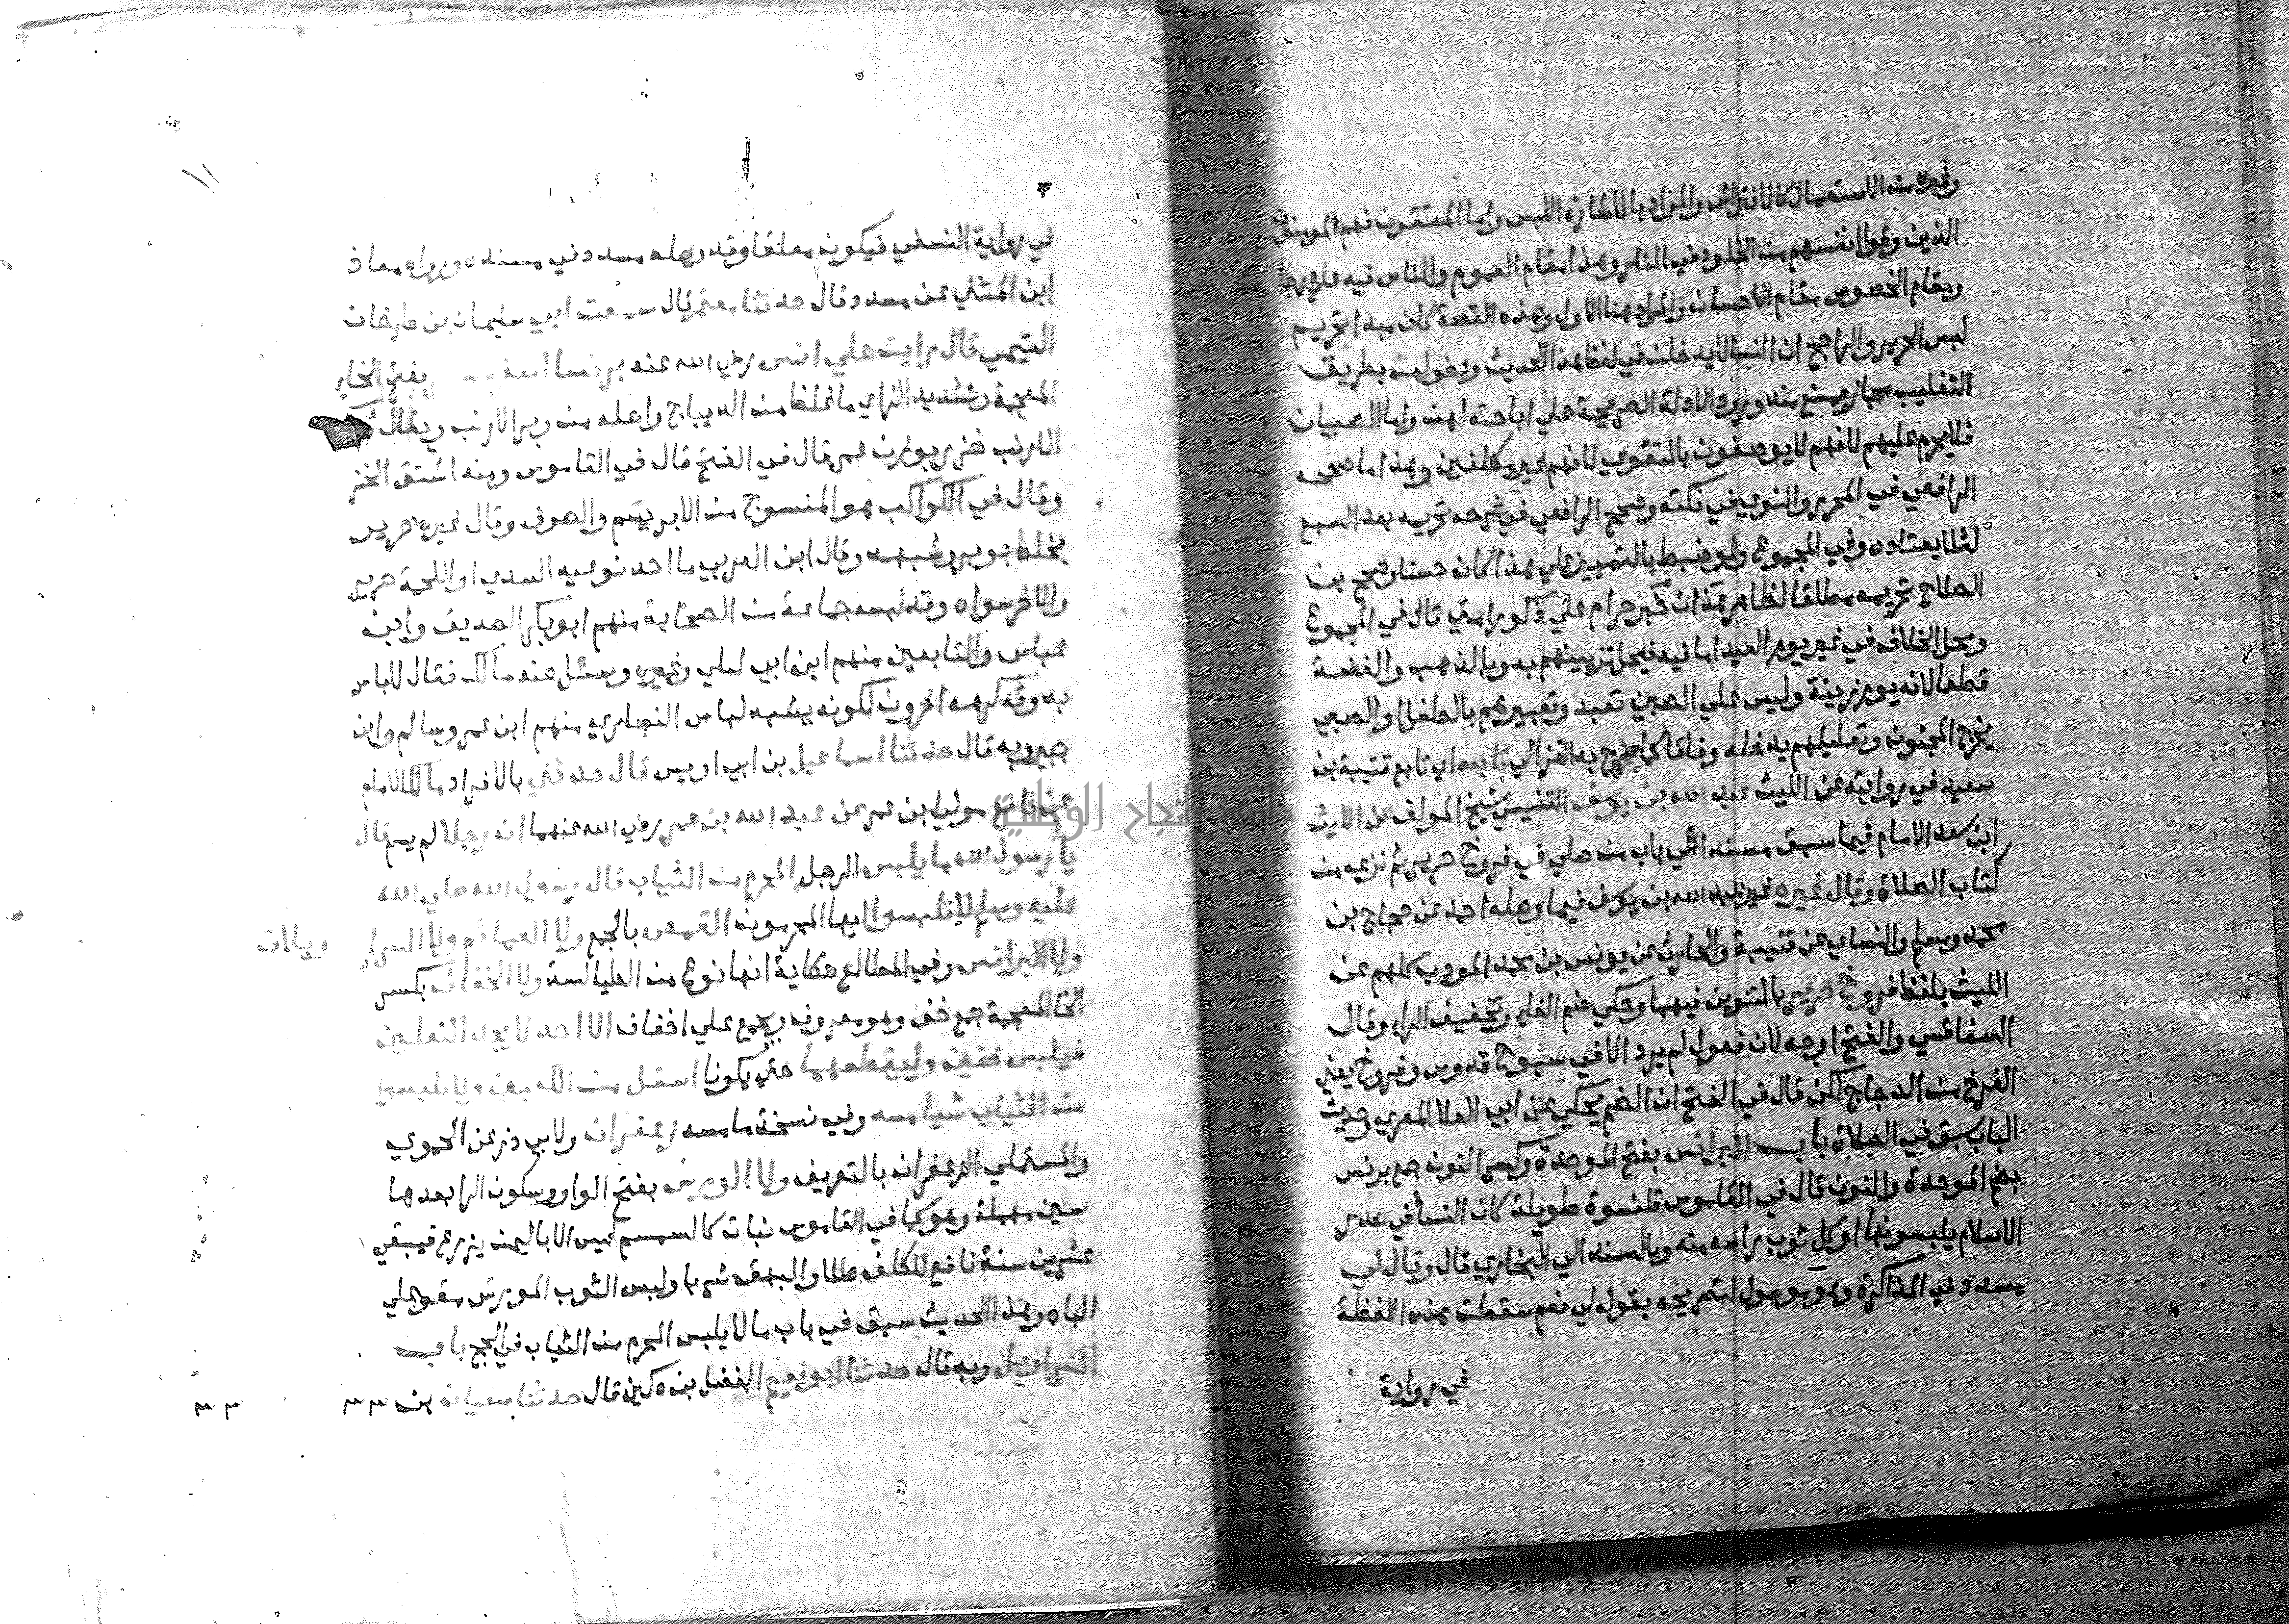 وغيره من الاستعمال كالافتراش والمراد بالاشارة اللبس واما المتقون فهم المومنون
الذين وقوا انفسهم من الخلود في النار وهذا مقام العموم والناس فيه علي درجات
ومقام الخصوص مقام الاحسان والمراد هنا الاول وهذه القصة كان مبدا تحريم
لبس الحرير والراجح ان النسا لايدخلن في لفظ هذا الحديث ودخولهن بطريق
التغليب مجاز يمنع منه ورود الادلة الصريحة علي اباحته لهن واما الصبيان
فلايحرم عليهم لانهم لايوصفون بالتقوي لانهم غير مكلفين وهذا ما صححه
الرافعي في المحرر والنووي في نكته وصحح الرافعي في شرحه تحريمه بعد السبع
لئلا يعتاده وفي المجموع ولو ضبط بالتمييز علي هذا كان حسنا وصحح بن
الصلاح تحريمه مطلقا لظاهر هذان حرام علي ذكور امتي قال في المجموع
ومحل الخلاف في غير يوم العيد اما فيه فيحل تزيينهم به وبالذهب والفضة
قطعا لانه يوم زينة وليس علي الصبي تعبد وتعبيرهم بالطفل او الصبي
يخرج المجنون وتعليلهم يدخله وفاقا كما صرح به الغزالي تابعه اي تابع قتيبة بن
سعيد في روايته عن الليث عبد الله بن يوسف التنيسي شيخ المولف عن الليث
ابن سعد الامام فيما سبق مسندا في باب من صلي في فروج حرير ثم نزعه من
كتاب الصلاة وقال غيره غير عبد الله بن يوسف فيما وصله احمد عن حجاج بن
محمد ومسلم والنساي عن قتيبة والحارث عن يونس بن محمد المودب كلهم عن
الليث بلفظ فروج حرير بالتنوين فيهما وحكي ضم الفاء وتخفيف الراء وقال
السفاقسي والفتح اوجه لان فعول لم يرد الا في سبوح قدوس وفروخ يعني
الفرخ من الدجاج لكن قال في الفتح ان الضم يحكي عن ابي العلا المعري وحديث
الباب سبق في الصلاة باب البرانس بفتح الموحدة وكسر النون جمع برنس
بضم الموحدة والنون قال في القاموس قلنسوة طويلة كان النساك في صدر
الاسلام يلبسونها او كل ثوب راسه منه وبالسند الي البخاري قال وقال لي
مسدد في المذاكرة وهو موصول لتصريحه بقوله لي نعم سقطت هذه اللفظة
في رواية
١١
في رواية النسفي فيكون معلقا وقد وصله مسدد في مسنده ورواه معاذ
ابن المثني عن مسدد قال حدثنا معتمر قال سمعت ابي سليمان بن طرخان
التيمي قال رايت علي انس رضي الله عنه برنسا اصفر بفتح الخاء
المعجمة وتشديد الزاي ما غلظ من الديباج واصله من وبر الارنب ويقال
الارنب خزز بوزن عمر قال في الفتح قال في القاموس ومنه اشتق الخز
وقال في الكواكب هو المنسوج من الابريسم والصوف وقال غيره حرير
يخلط بوبر وشبهه وقال ابن العربي ما احد نوعيه السدي او اللحمة حرير
والاخر سواه وقد لبسه جماعة من الصحابة منهم ابو بكر الصديق وابن
عباس والتابعين منهم ابن ابي ليلي وغيره وسئل عنه مالك فقال لاباس
به وقد كرهه اخرون لكونه يشبه لباس النصاري منهم ابن عمر وسالم وابن
جبير وبه قال حدثنا اسماعيل بن ابي اويس قال حدثني بالافراد مالك الامام
عن نافع مولي ابن عمر عن عبد الله بن عمر رضي الله عنهما ان رجلا لم يسم قال
يا رسول الله ما يلبس الرجل المحرم من الثياب قال رسول الله صلي الله
عليه وسلم لا تلبسوا ايها المحرمون القمص بالجمع ولا العمائم ولا السرا ويلات
ولا البرانس وفي المطالع حكاية انها نوع من الطيالسة ولا الخفاف بكسر
الخا المعجمة جمع خف وهو معروف ويجمع علي اخفاف الا احد لا يجد النعلين
فيلبس خفين وليقطعهما حتي يكونا اسفل من الكعبين ولا تلبسوا
من الثياب شيا مسه وفي نسخة ما مسه زعفران ولابي ذر عن الحموي
والمستملي الزعفران بالتعريف ولا الورس بفتح الواو وسكون الرا بعدها
سين مهملة وهو كما في القاموس نبات كالسمسم ليس الا باليمن يزرع فيبقي
عشرين سنة نافع للكلف طلا وللبهق شربا ولبس الثوب المورس مقو علي
الباه وهذا الحديث سبق في باب ما لا يلبس المحرم من الثياب في الحج باب
السراويل وبه قال حدثنا ابو نعيم الفضل بن دكين قال حدثنا سفيان بن
جامعة النجاح الوطنية